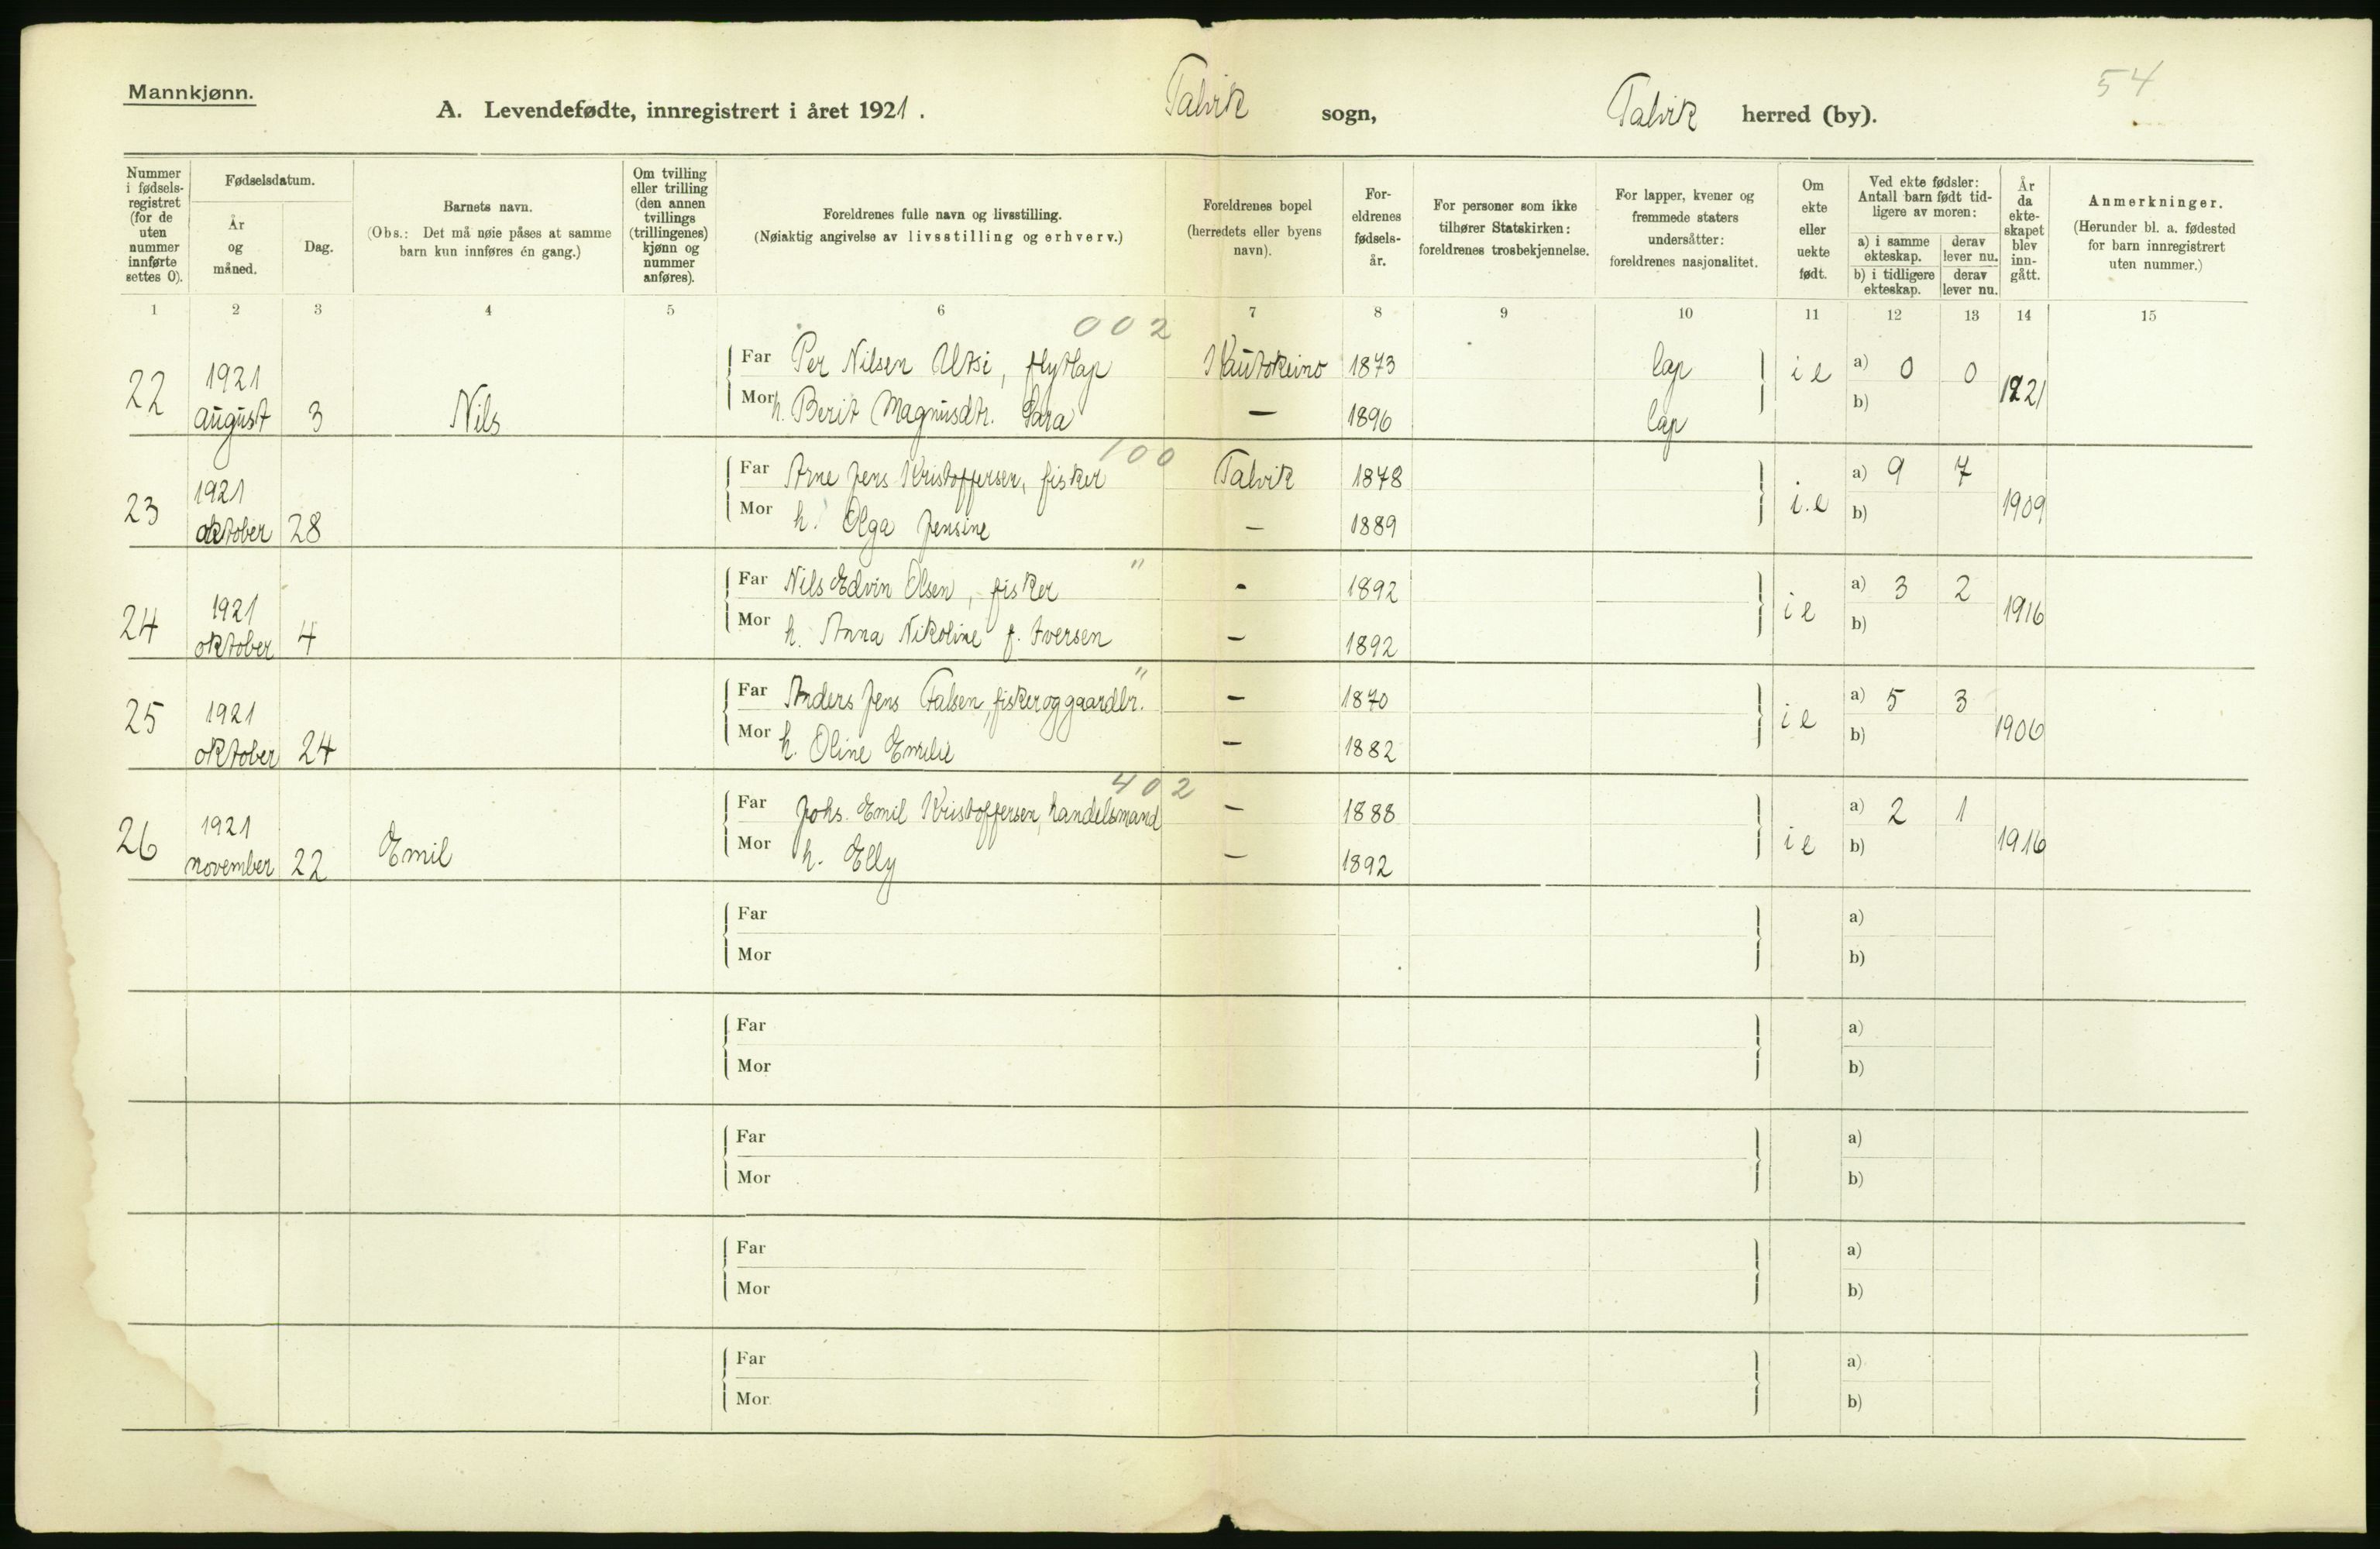 Mannkjønn.
A. Levendefødte, innregistrert i året 1921. Talvik sogn, Talvik herred (by). 54
Nummer i fødselsregistret (for de uten nummer innførte settes 0).
Fødselsdatum.
År og måned.
Dag.
Barnets navn.
(Obs.: Det må nøie påses at samme barn kun innføres én gang.)
Om tvilling eller trilling (den annen tvillings (trillingenes) kjønn og nummer anføres).
Foreldrenes fulle navn og livsstilling.
(Nøiaktig angivelse av livsstilling og erhverv.)
Foreldrenes bopel (herredets eller byens navn).
Foreldrenes fødselsår.
For personer som ikke tilhører Statskirken: foreldrenes trosbekjennelse.
For lapper, kvener og fremmede staters undersåtter: foreldrenes nasjonalitet.
Om ekte eller uekte født.
Ved ekte fødsler: Antall barn født tidligere av moren:
a) i samme ekteskap. derav lever nu.
b) i tidligere ekteskap. derav lever nu.
År da ekteskapet blev inngått.
Anmerkninger.
(Herunder bl. a. fødested for barn innregistrert uten nummer.)
1 2 3 4 5 6 7 8 9 10 11 12 13 14 15
002
22 1921 august 3 Nils
Far Per Nilsen Utsi, flytlap Kautokeino 1873 lap ie a) 0 0 1921
Mor h. Berit Magnusdtr. Sara — 1896 lap b)
100
23 1921 oktober 28
Far Arne Jens Kristoffersen, fisker Talvik 1878 i.e a) 9 7 1909
Mor h. Olga Jensine — 1889 b)
"
24 1921 oktober 4
Far Nils Edvin Olsen, fisker - 1892 ie a) 3 2 1916
Mor h. Anna Nikoline f. Iversen — 1892 b)
"
25 1921 oktober 24
Far Anders Jens Falsen, fisker og gaardbr. — 1870 ie a) 5 3 1906
Mor h. Oline Emilie — 1882 b)
402
26 1921 november 22 Emil
Far Johs. Emil Kristoffersen, handelsmand — 1888 ie a) 2 1 1916
Mor h. Elly — 1892 b)
Far a)
Mor b)
Far a)
Mor b)
Far a)
Mor b)
Far a)
Mor b)
Far a)
Mor b)